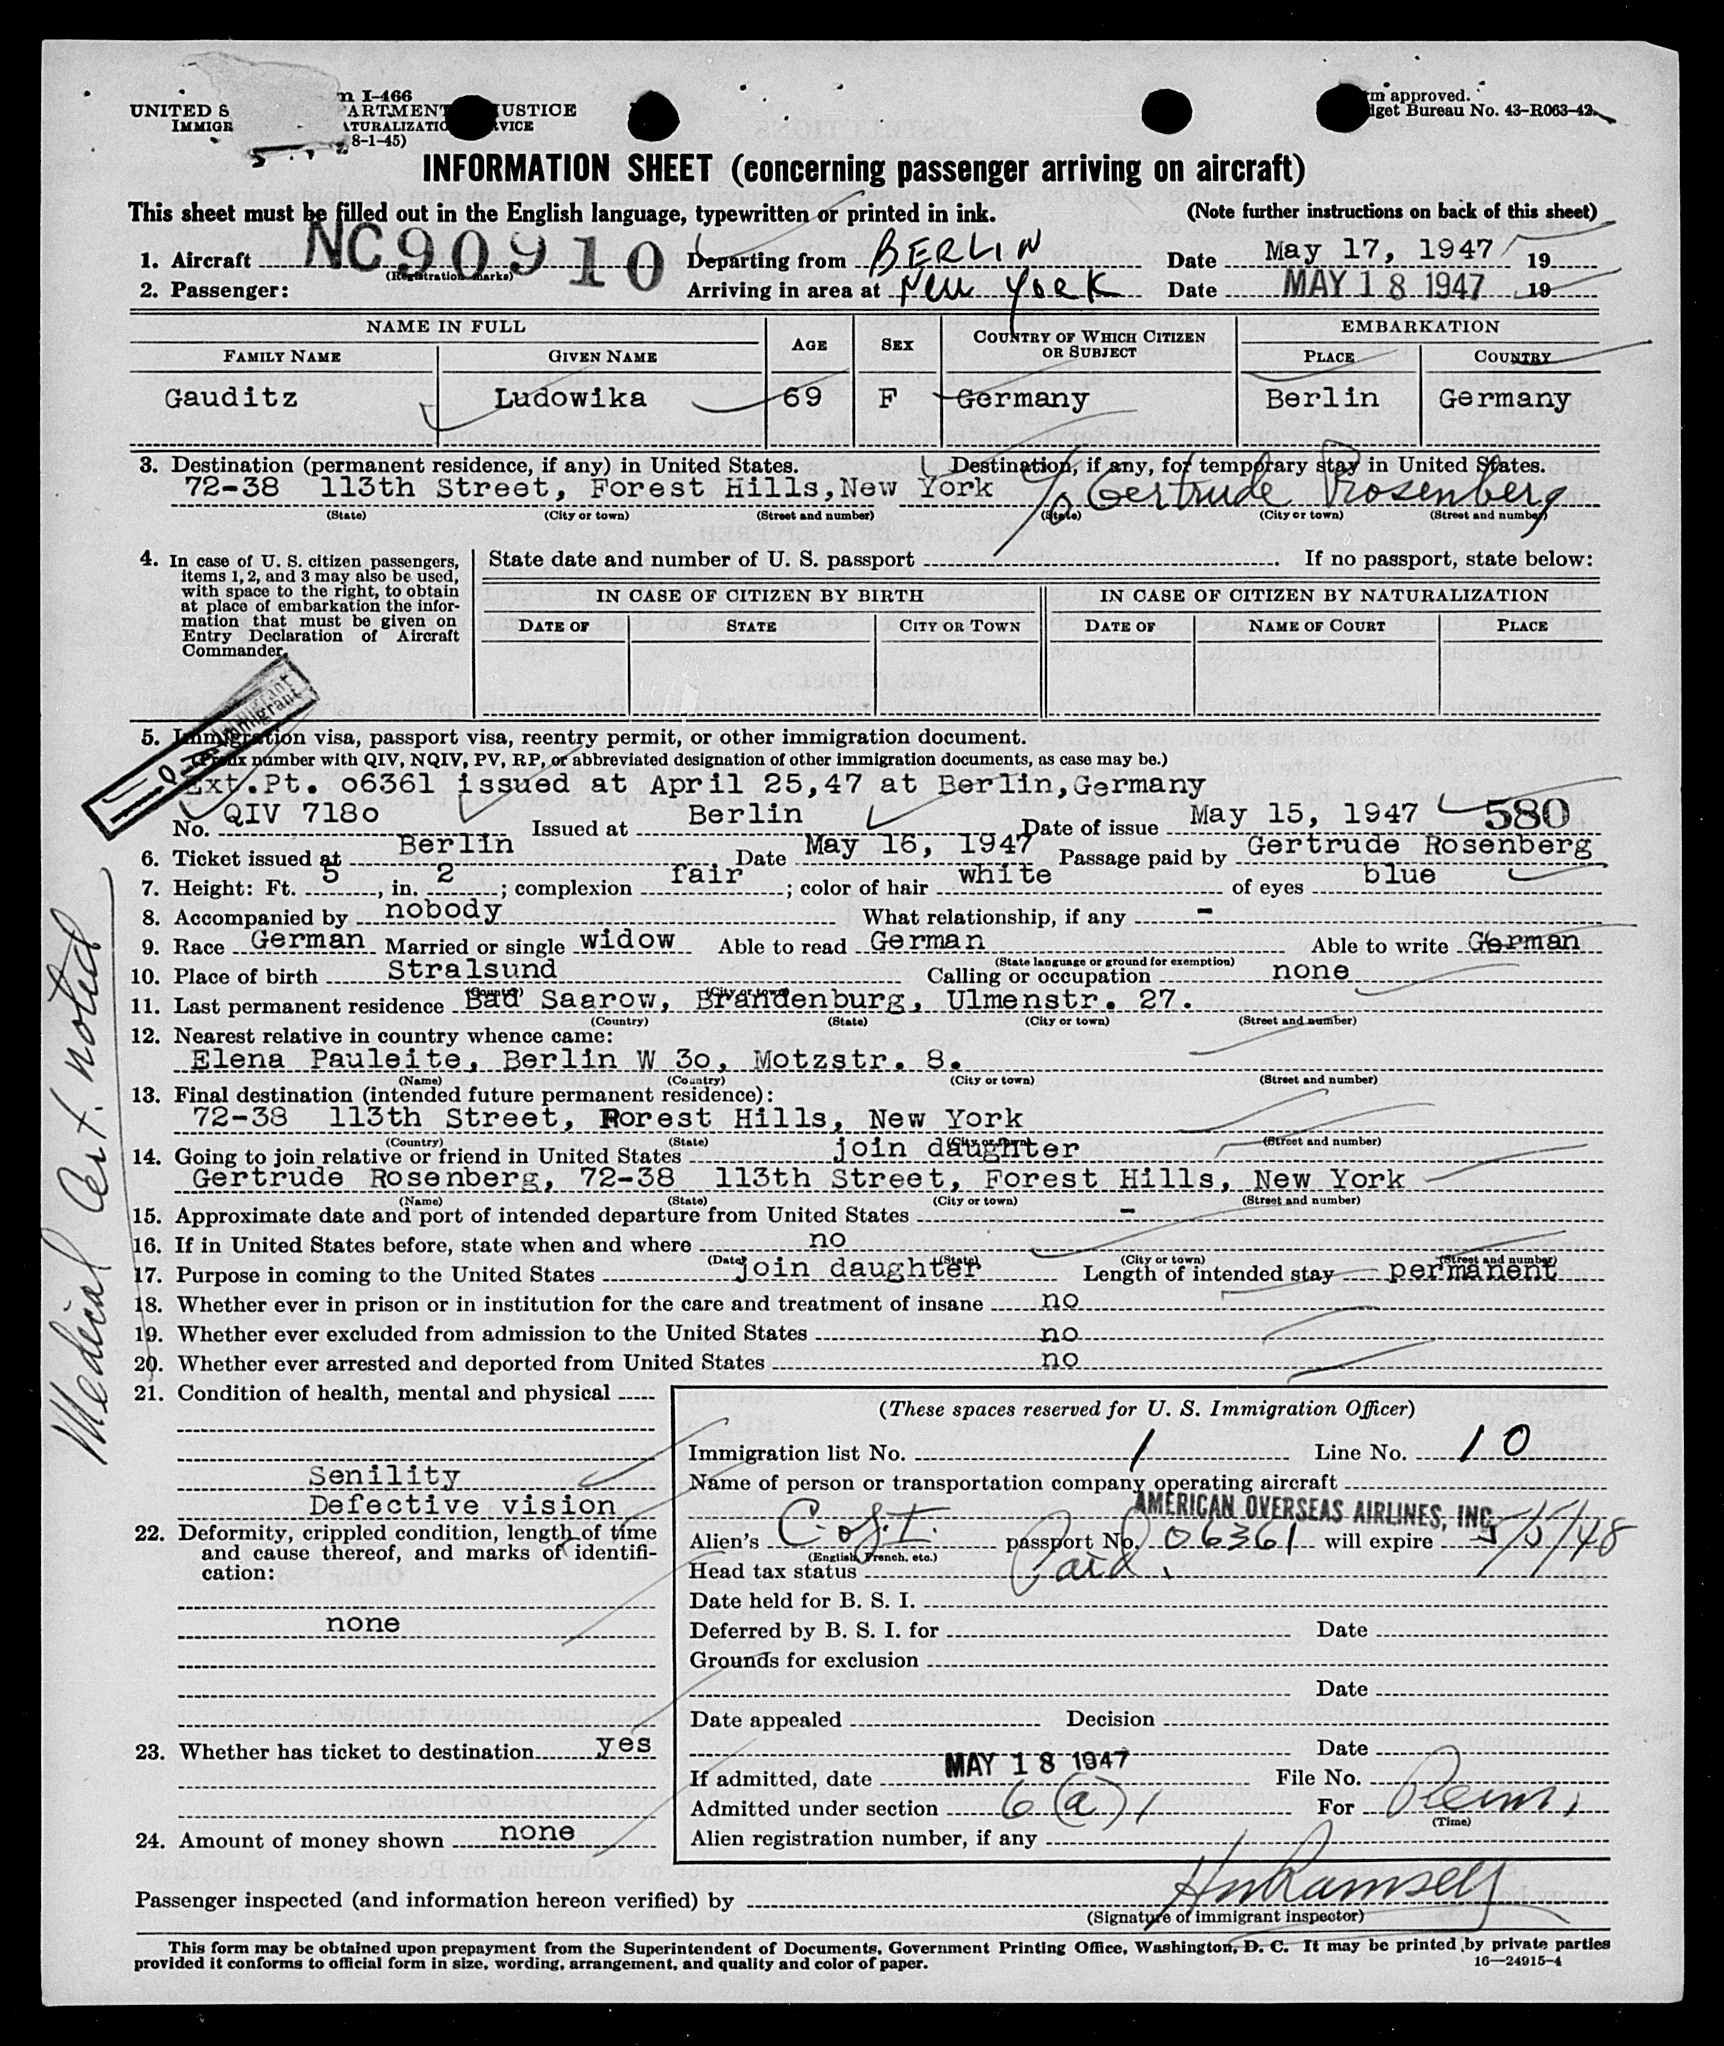 n I-466
UNITED S ARTMENT JUSTICE
IMMIGR ATURALIZATIO VICE
8-1-45)
m approved.
dget Bureau No. 43-R063-42.
INFORMATION SHEET (concerning passenger arriving on aircraft)
This sheet must be filled out in the English language, typewritten or printed in ink. (Note further instructions on back of this sheet)
1. Aircraft NC90910 Departing from BERLIN Date May 17, 1947 19
(Registration marks)
2. Passenger: Arriving in area at New York Date MAY 18 1947 19
NAME IN FULL AGE SEX COUNTRY OF WHICH CITIZEN OR SUBJECT EMBARKATION
FAMILY NAME GIVEN NAME PLACE COUNTRY
Gauditz Ludowika 69 F Germany Berlin Germany
3. Destination (permanent residence, if any) in United States. Destination, if any, for temporary stay in United States.
72-38 113th Street, Forest Hills, New York c/o Gertrude Rosenberg
(State) (City or town) (Street and number) (State) (City or town) (Street and number)
4. In case of U. S. citizen passengers,
items 1, 2, and 3 may also be used,
with space to the right, to obtain
at place of embarkation the infor-
mation that must be given on
Entry Declaration of Aircraft
Commander.
State date and number of U. S. passport . If no passport, state below:
IN CASE OF CITIZEN BY BIRTH IN CASE OF CITIZEN BY NATURALIZATION
DATE OF STATE CITY OR TOWN DATE OF NAME OF COURT PLACE
5. Immigration visa, passport visa, reentry permit, or other immigration document.
(Prefix number with QIV, NQIV, PV, RP, or abbreviated designation of other immigration documents, as case may be.)
Ext.Pt. o6361 issued at April 25,47 at Berlin,Germany
No. QIV 718o Issued at Berlin Date of issue May 15, 1947 580
6. Ticket issued at Berlin Date May 16, 1947 Passage paid by Gertrude Rosenberg
7. Height: Ft. 5, in. 2; complexion fair; color of hair white of eyes blue
8. Accompanied by nobody What relationship, if any -
9. Race German Married or single widow Able to read German Able to write German
(State language or ground for exemption)
10. Place of birth Stralsund Calling or occupation none
(Country) (City or town)
11. Last permanent residence Bad Saarow, Brandenburg, Ulmenstr. 27.
(Country) (State) (City or town) (Street and number)
12. Nearest relative in country whence came:
Elena Pauleite, Berlin W 3o, Motzstr. 8.
(Name) (Country) (City or town) (Street and number)
13. Final destination (intended future permanent residence):
72-38 113th Street, Forest Hills, New York
(Country) (State) (City or town) (Street and number)
14. Going to join relative or friend in United States join daughter
Gertrude Rosenberg, 72-38 113th Street, Forest Hills, New York
(Name) (State) (City or town) (Street and number)
15. Approximate date and port of intended departure from United States -
16. If in United States before, state when and where no
(Date) (State) (City or town) (Street and number)
17. Purpose in coming to the United States join daughter Length of intended stay permanent
18. Whether ever in prison or in institution for the care and treatment of insane no
19. Whether ever excluded from admission to the United States no
20. Whether ever arrested and deported from United States no
Medical Cert. noted
21. Condition of health, mental and physical
Senility
Defective vision
22. Deformity, crippled condition, length of time
and cause thereof, and marks of identifi-
cation:
none
23. Whether has ticket to destination yes
24. Amount of money shown none
(These spaces reserved for U. S. Immigration Officer)
Immigration list No. 1 Line No. 10
Name of person or transportation company operating aircraft
AMERICAN OVERSEAS AIRLINES, INC.
Alien's C. of I. passport No. 06361 will expire 5/5/48
(English, French, etc.)
Head tax status Paid.
Date held for B. S. I.
Deferred by B. S. I. for Date
Grounds for exclusion
Date
Date appealed Decision
Date
If admitted, date MAY 18 1947 File No.
Admitted under section 6(a)1 For Perm.
(Time)
Alien registration number, if any
Passenger inspected (and information hereon verified) by HM Ramsey
(Signature of immigrant inspector)
This form may be obtained upon prepayment from the Superintendent of Documents, Government Printing Office, Washington, D. C. It may be printed by private parties
provided it conforms to official form in size, wording, arrangement, and quality and color of paper. 16—24915-4